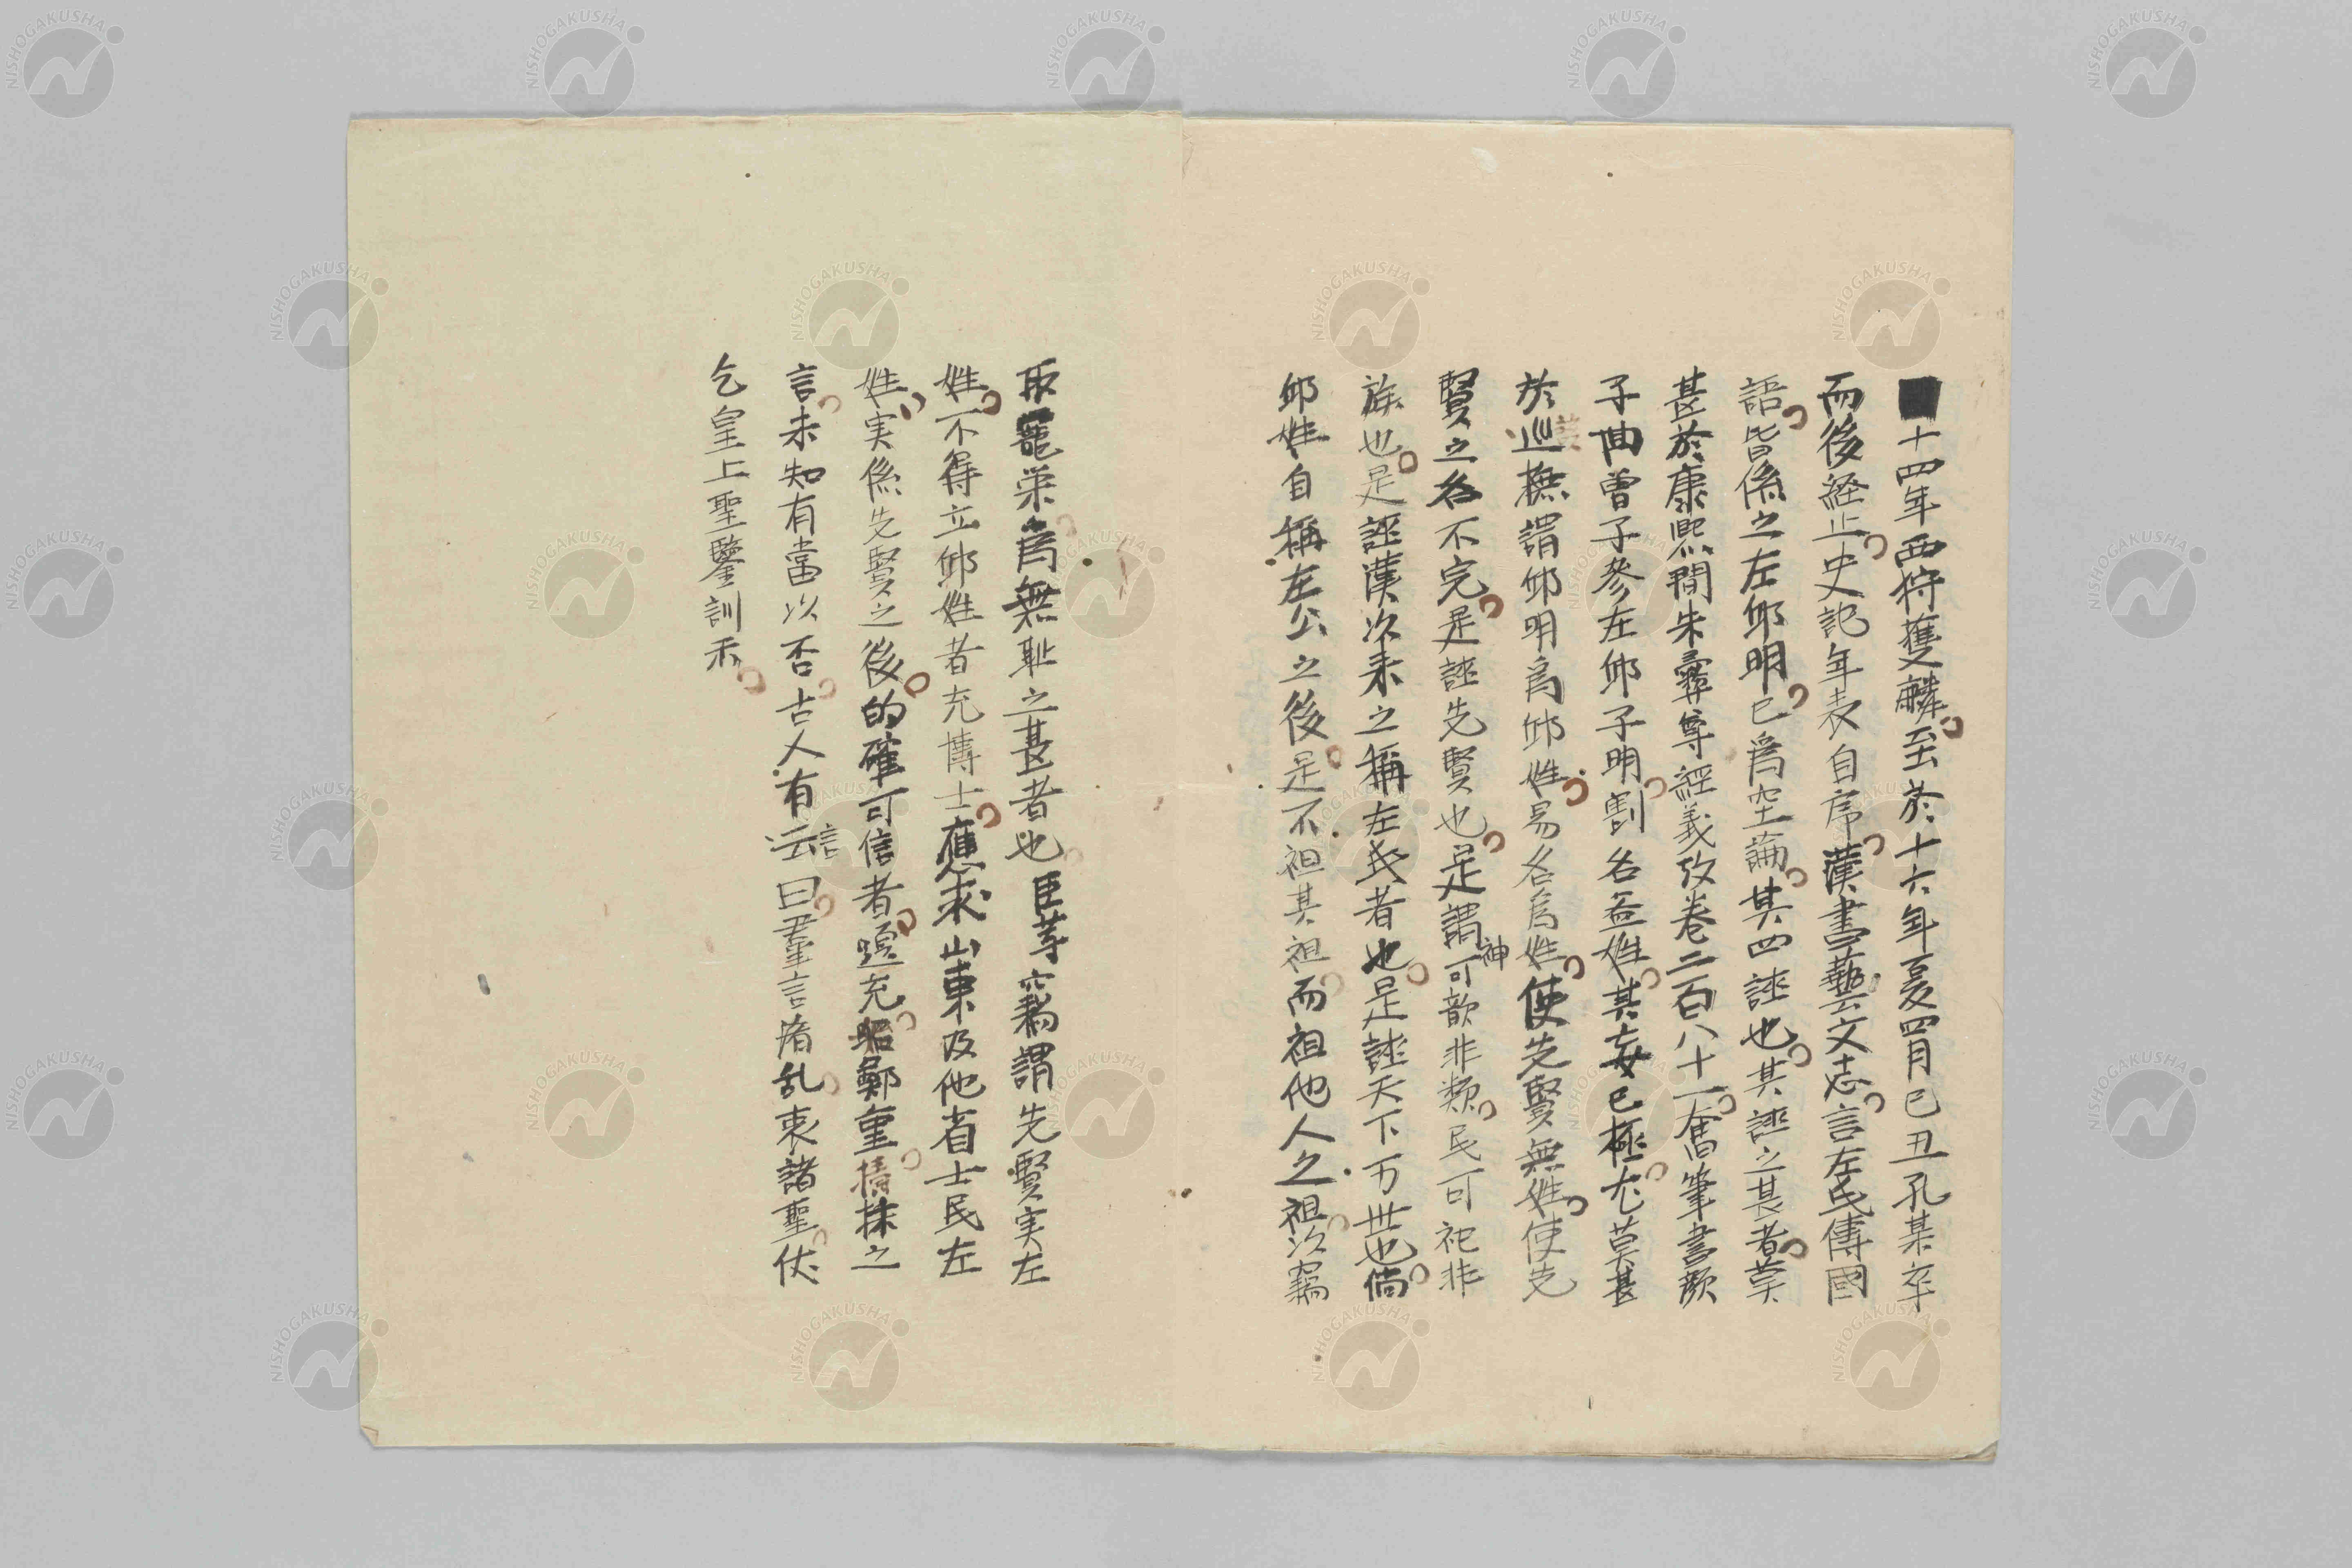 ■十四年西狩獲麟至於十六年夏四月已丑孔某卒
而後経止史記年表自序漢書藝文志言左氏傳國
語皆係之左邱明已為空論其四誣也其誣之甚者莫
甚於康熙間朱彛尊經義攷巻二百八十一奮筆書顏
子曲曾子參左邱子明割名益姓其妄已極尤莫甚
於巡撫謂邱明為邱姓易名為姓使先賢無姓使先
賢之名不完是誣先賢也是謂神可歆非類民可祀非
族也是誣漢次来之稱左氏者也是誣天下万世也倘
邱姓自稱左公之後是不祖其祖而祖他人之祖次竊
取寵榮為無耻之甚者也臣等竊謂先賢実左
姓不得立邱姓者充博士應求山東及他省士民左
姓実係先賢之後的確可信者選充昭鄭重搢抹之
言未知有當以否古人有云言曰羣言淆乱衷諸聖伏
乞皇上聖鑒訓示
NISHOGAKUSHA